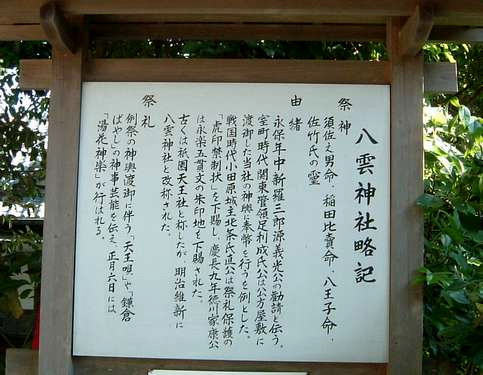 八雲神社略記
祭神
須佐之男命、稲田比売命、八王子命、
佐竹氏の霊
由緒
永保年中新羅三郎源義光公の勧請と伝う。
室町時代関東管領足利成氏公は公方屋敷に
渡御した当社の神輿に奉幣を行うを例とした。
戦国時代小田原城主北条氏直公は祭礼保護の
「虎印禁制状」を下賜し、慶長九年徳川家康公
は永楽五貫文の朱印地を下賜された。
古くは祇園天王社と称したが、明治維新に
八雲神社と改称された。
祭礼
例祭の神輿渡御に伴う、「天王唄」や「鎌倉
ばやし」の神事芸能を伝え、正月六日には、
「湯花神楽」が行はれる。